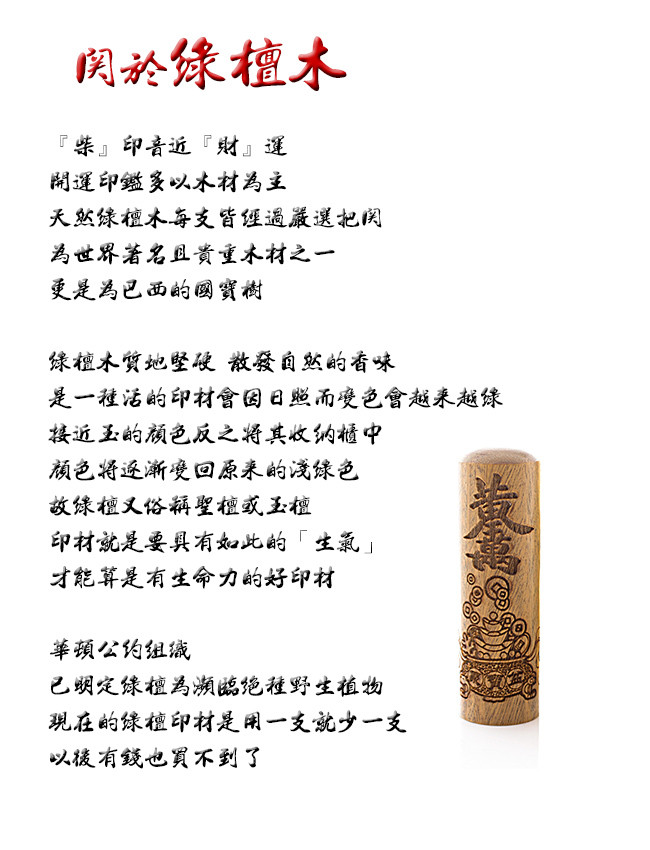 関於綠檀木
『柴』印音近『財』運
開運印鑑多以木材為主
天然綠檀木每支皆經過嚴選把関
為世界著名且貴重木材之一
更是為巴西的國寶樹
綠檀木質地堅硬 散發自然的香味
是一種活的印材會因日照而變色會越來越綠
接近玉的顏色反之將其收納櫃中
顏色將逐漸變回原來的淺綠色
故綠檀又俗稱聖檀或玉檀
印材就是要具有如此的「生氣」
才能算是有生命力的好印材
華頓公約組織
已明定綠檀為瀕臨絕種野生植物
現在的綠檀印材是用一支就少一支
以後有錢也買不到了